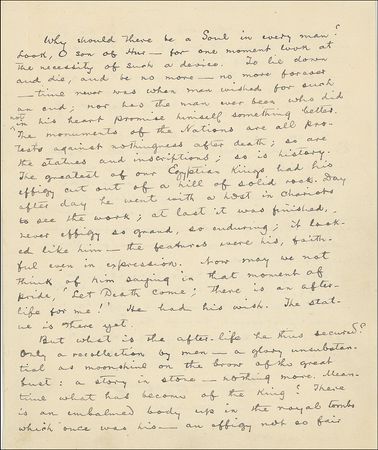 Why should there be a Soul in every man?
Look, O son of Hur — for one moment look at
the necessity of such a device. To lie down
and die, and be no more — no more forever
— time never was when man wished for such
an end; nor has the man ever been who did
not
in his heart promise himself something better.
The monuments of the Nations are all pro-
tests against nothingness after death; so are
the statues and inscriptions; so is history.
The greatest of our Egyptian Kings had his
effigy cut out of a hill of solid rock. Day
after day he went with a host in chariots
to see the work; at last it was finished,
never effigy so grand, so enduring; it look-
ed like him — the features were his, faith-
ful even in expression. Now may we not
think of him saying in that moment of
pride, 'Let Death come; there is an after-
life for me!' He had his wish. The stat-
ue is there yet.
But what is the after-life he thus secured?
Only a recollection by men — a glory unsubstan-
tial as moonshine on the brow of the great
bust: a story in stone — nothing more. Mean-
time what has become of the King? There
is an embalmed body up in the royal tombs
which once was his — an effigy not so fair